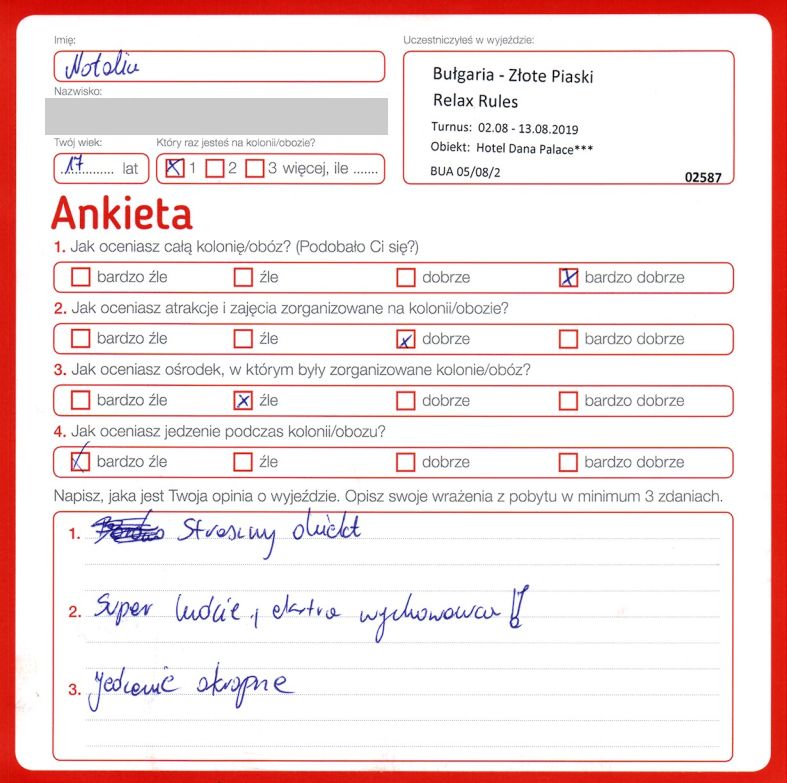 Imię:
Natalia
Nazwisko:
Twój wiek:
17 lat
Który raz jesteś na kolonii/obozie?
1 2 3 więcej, ile .......
Uczestniczyłeś w wyjeździe:
Bułgaria - Złote Piaski
Relax Rules
Turnus: 02.08 - 13.08.2019
Obiekt: Hotel Dana Palace***
BUA 05/08/2
02587
Ankieta
1. Jak oceniasz całą kolonię/obóz? (Podobało Ci się?)
bardzo źle źle dobrze bardzo dobrze
2. Jak oceniasz atrakcje i zajęcia zorganizowane na kolonii/obozie?
bardzo źle źle dobrze bardzo dobrze
3. Jak oceniasz ośrodek, w którym były zorganizowane kolonie/obóz?
bardzo źle źle dobrze bardzo dobrze
4. Jak oceniasz jedzenie podczas kolonii/obozu?
bardzo źle źle dobrze bardzo dobrze
Napisz, jaka jest Twoja opinia o wyjeździe. Opisz swoje wrażenia z pobytu w minimum 3 zdaniach.
1. Straszny obiekt
2. Super ludzie, ekstra wychowawca!!
3. Jedzenie okropne